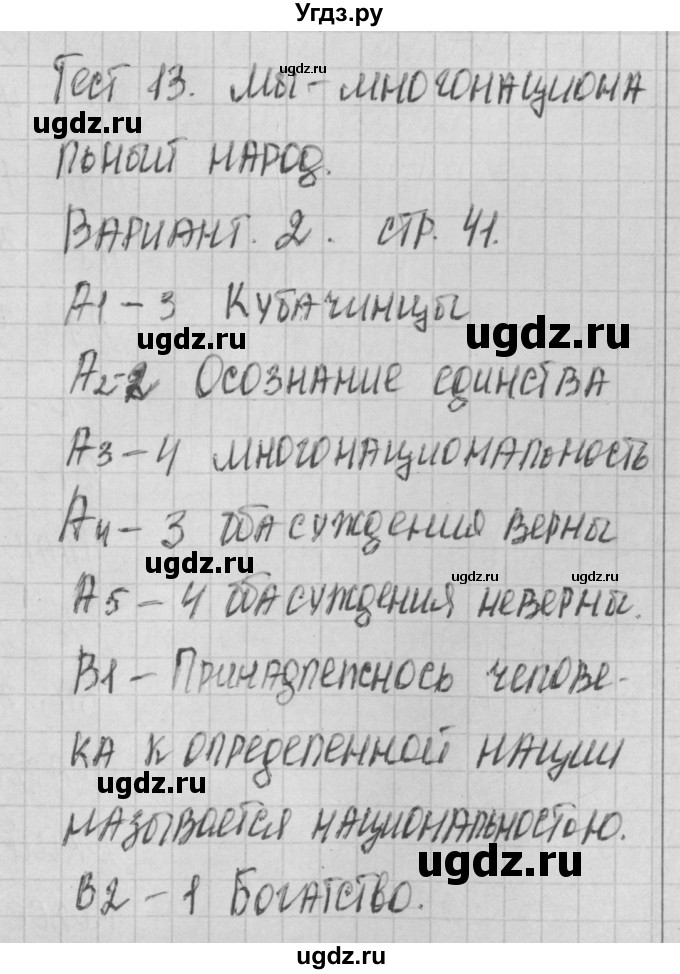 Угдз.ру
Тест 13. Мы - многонациона
льный народ.
Вариант. 2. стр. 41.
А1 - 3 Кубачинцы
А2-2 Осознание единства
А3 - 4 многонациональность
А4 - 3 оба суждения верны
А5 - 4 оба суждения неверны.
В1 - Принадлежнось челове-
ка к определенной нации
называется национальностью.
В2 - 1 Богатство.
ugdz.ru
ugdz.ru
ugdz.ru
ugdz.ru
ugdz.ru
ugdz.ru
ugdz.ru
ugdz.ru
ugdz.ru
ugdz.ru
ugdz.ru